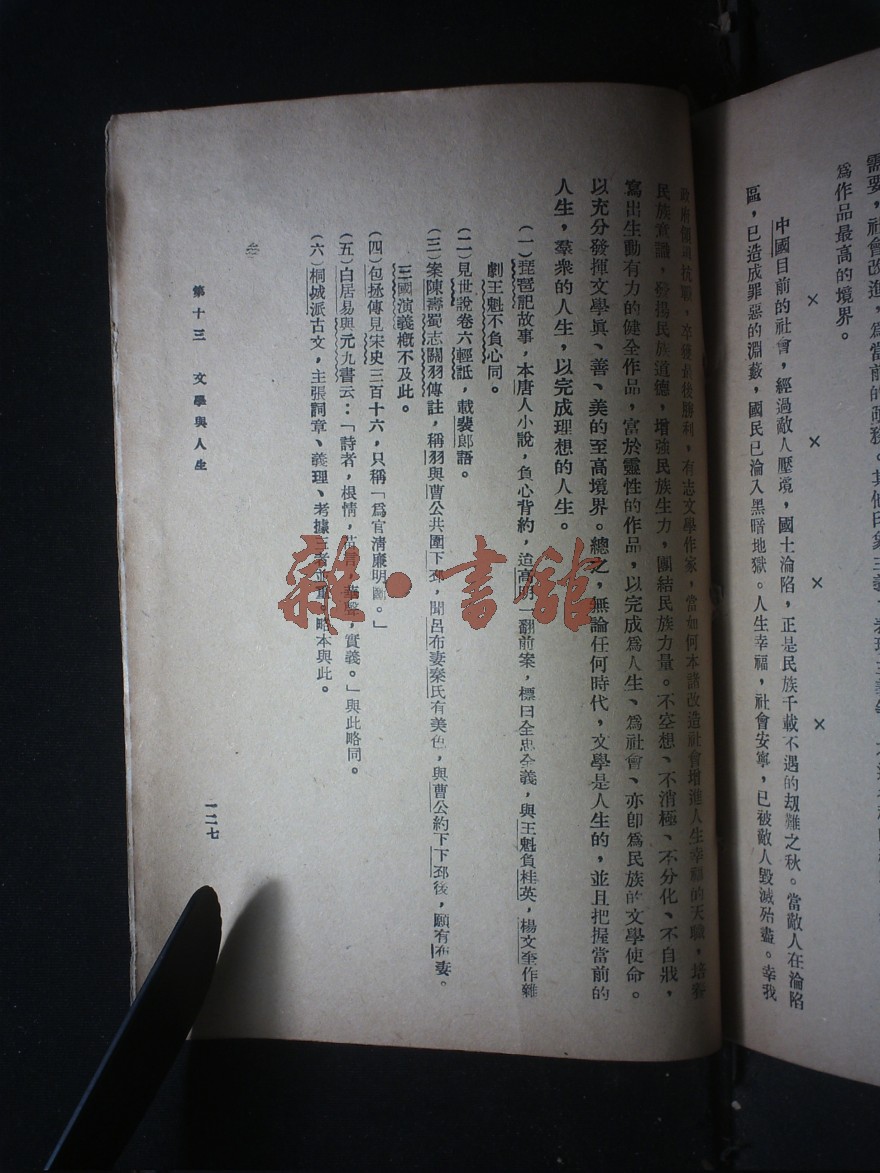 需要，社會改進，爲當前的
爲作品最高的境界。
× × × ×
中國目前的社會，經過敵人壓境，國土淪陷，正是民族千載不遇的刼難之秋。當敵人在淪陷
區，已造成罪惡的淵藪，國民已淪入黑暗地獄。人生幸福，社會安寧，已被敵人毀滅殆盡。幸我
政府領導抗戰，卒獲最後勝利，有志文學作家，當如何本諸改造社會增進人生幸福的天職，培養
民族意識，發揚民族道德，增強民族生力，團結民族力量。不空想、不消極、不分化、不自戕，
寫出生動有力的健全作品，富於靈性的作品，以完成爲人生、爲社會、亦卽爲民族的文學使命。
以充分發揮文學眞、善、美的至高境界。總之，無論任何時代，文學是人生的，並且把握當前的
人生，羣衆的人生，以完成理想的人生。
（一）琵琶記故事，本唐人小說，負心背約，迨高 一翻前案，標曰全忠全義，與王魁負桂英，楊文奎作雜
劇王魁不負心同。
（二）見世說卷六輕詆，載裴郎語。
（三）案陳壽蜀志關羽傳註，稱羽與曹公共圍下邳，聞呂布妻秦氏有美色，與曹公約下下邳後，願宥布妻。
三國演義槪不及此。
（四）包拯傳見宋史三百十六，只稱「爲官淸廉明 。」
（五）白居易與元九書云：「詩者，根情，苗言，華聲，實義。」與此略同。
（六）桐城派古文，主張詞章、義理、考據三者並重，略本與此。
第十三 文學與人生
一二七
雜·書館